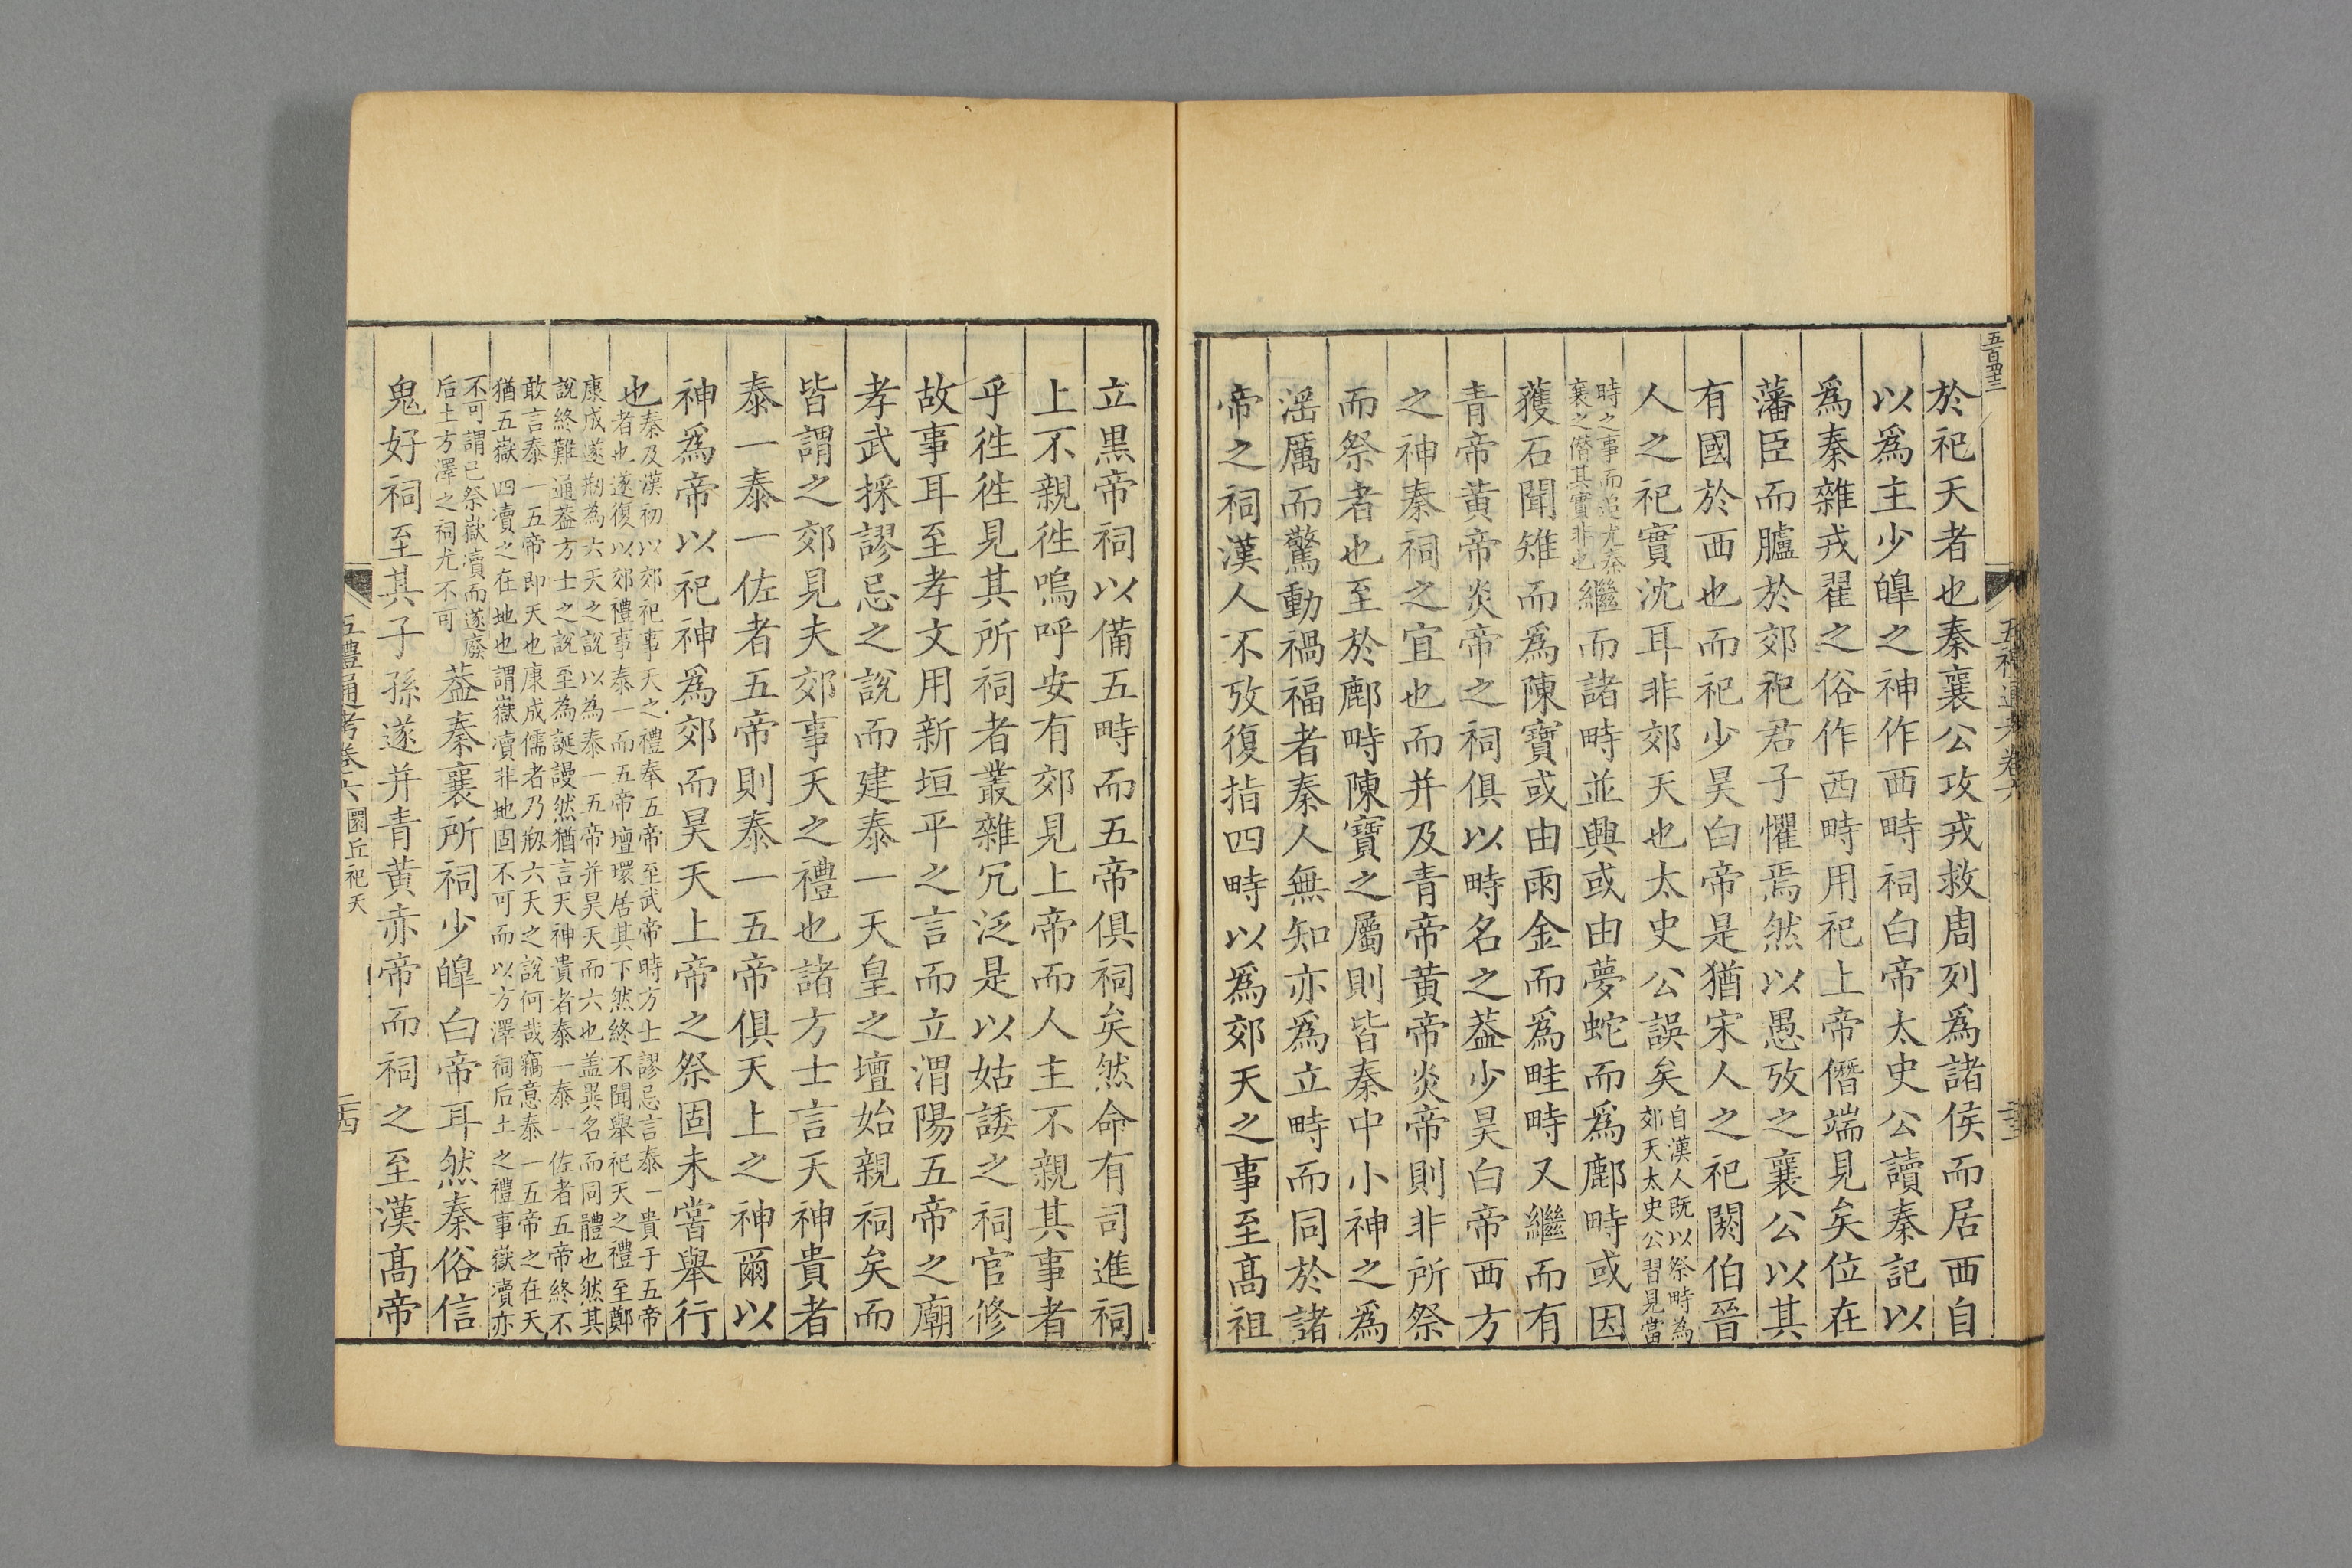 五百四十三
於祀天者也秦襄公攻戎救周列爲諸侯而居西自
以爲主少皥之神作西畤祠白帝太史公讀秦記以
爲秦雜戎翟之俗作西畤用祀上帝僭端見矣位在
藩臣而臚於郊祀君子懼焉然以愚攷之襄公以其
有國於西也而祀少昊白帝是猶宋人之祀閼伯晉
人之祀實沈耳非郊天也太史公誤矣自漢人既以祭畤為
郊天太史公習見當
時之事而追尤秦
襄之僭其實非也繼而諸畤並興或由夢蛇而爲鄜畤或因
獲石聞雉而爲陳寶或由雨金而爲畦畤又繼而有
青帝黃帝炎帝之祠俱以畤名之葢少昊白帝西方
之神秦祠之宜也而并及青帝黃帝炎帝則非所祭
而祭者也至於鄜畤陳寶之屬則皆秦中小神之爲
滛厲而驚動禍福者秦人無知亦爲立畤而同於諸
帝之祠漢人不攷復指四畤以爲郊天之事至髙祖
立黒帝祠以備五畤而五帝俱祠矣然命有司進祠
上不親徃嗚呼安有郊見上帝而人主不親其事者
乎徃徃見其所祠者叢雜冗泛是以姑諉之祠官修
故事耳至孝文用新垣平之言而立渭陽五帝之廟
孝武採謬忌之說而建泰一天皇之壇始親祠矣而
皆謂之郊見夫郊事天之禮也諸方士言天神貴者
泰一泰一佐者五帝則泰一五帝俱天上之神爾以
神爲帝以祀神爲郊而昊天上帝之祭固未嘗舉行
也秦及漢初以郊祀事天之禮奉五帝至武帝時方士謬忌言泰一貴于五帝
者也遂復以郊禮事泰一而五帝壇環居其下然終不聞舉祀天之禮至鄭
康成遂剏為六天之說以為泰一五帝并昊天而六也盖異名而同體也然其
說終難通葢方士之說至為誕謾然猶言天神貴者泰一泰一佐者五帝終不
敢言泰一五帝即天也康成儒者乃剏六天之說何哉竊意泰一五帝之在天
猶五嶽四瀆之在地也謂嶽瀆非地固不可而以方澤祠后土之禮事嶽瀆亦
不可謂已祭嶽瀆而遂廢
后土方澤之祠尤不可葢秦襄所祠少皥白帝耳然秦俗信
鬼好祠至其子孫遂并青黃赤帝而祠之至漢髙帝
五禮通考卷六 圜丘祀天 二四